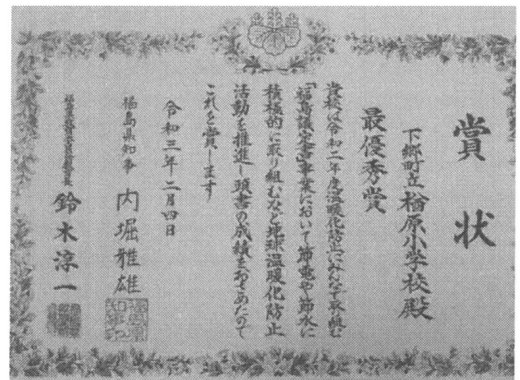 賞状
下郷町立楢原小学校殿
最優秀賞
貴校は令和二年度温暖化防止にみんなで取組む
「福島議定書」事業において節電や節水に
積極的に取り組むなど地球温暖化防止
活動を推進し顕著の成績をおさめたので
これを賞します
令和三年二月四日
福島県知事 内堀雅雄
鈴木淳一